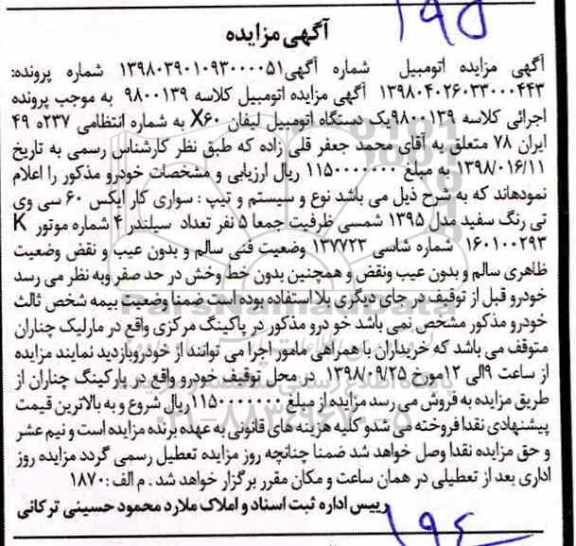 ۱۹۵
آگهی مزایده
آگهی مزایده اتومبیل شماره آگهی۱۳۹۸۰۳۹۰۱۰۹۳۰۰۰۰۵۱ شماره پرونده:
۱۳۹۸۰۴۰۲۶۰۳۳۰۰۰۴۴۳ آگهی مزایده اتومبیل کلاسه ۹۸۰۰۱۳۹ به موجب پرونده
اجرائی کلاسه ۹۸۰۰۱۳۹یک دستگاه اتومبیل لیفان X۶۰ به شماره انتظامی ۲۳۷ه ۴۹
ایران ۷۸ متعلق به آقای محمد جعفر قلی زاده که طبق نظر کارشناس رسمی به تاریخ
۱۳۹۸/۰۱۶/۱۱ به مبلغ ۱۱۵۰۰۰۰۰۰۰ ریال ارزیابی و مشخصات خودرو مذکور را اعلام
نمودهاند که به شرح ذیل می باشد نوع و سیستم و تیپ : سواری کار ایکس ۶۰ سی وی
تی رنگ سفید مدل ۱۳۹۵ شمسی ظرفیت جمعا ۵ نفر تعداد سیلندر ۴ شماره موتور K
۱۶۰۱۰۰۲۹۳ شماره شاسی ۱۳۷۷۲۳ وضعیت فنی سالم و بدون عیب و نقض وضعیت
ظاهری سالم و بدون عیب ونقض و همچنین بدون خط وخش در حد صفر وبه نظر می رسد
خودرو قبل از توقیف در جای دیگری بلا استفاده بوده است ضمنا وضعیت بیمه شخص ثالث
خودرو مذکور مشخص نمی باشد خو درو مذکور در پاکینگ مرکزی واقع در مارلیک چناران
متوقف می باشد که خریداران با همراهی مامور اجرا می توانند از خودروبازدید نمایند مزایده
از ساعت ۹الی ۱۲مورخ ۱۳۹۸/۰۹/۲۵ در محل توقیف خودرو واقع در پارکینگ چناران از
طریق مزایده به فروش می رسد مزایده از مبلغ ۱۱۵۰۰۰۰۰۰۰ ریال شروع و به بالاترین قیمت
پیشنهادی نقدا فروخته می شدو کلیه هزینه های قانونی به عهده برنده مزایده است و نیم عشر
و حق مزایده نقدا وصل خواهد شد ضمنا چنانچه روز مزایده تعطیل رسمی گردد مزایده روز
اداری بعد از تعطیلی در همان ساعت و مکان مقرر برگزار خواهد شد . م الف :۱۸۷۰
رییس اداره ثبت اسناد و املاک ملارد محمود حسینی ترکانی
۱۹۶